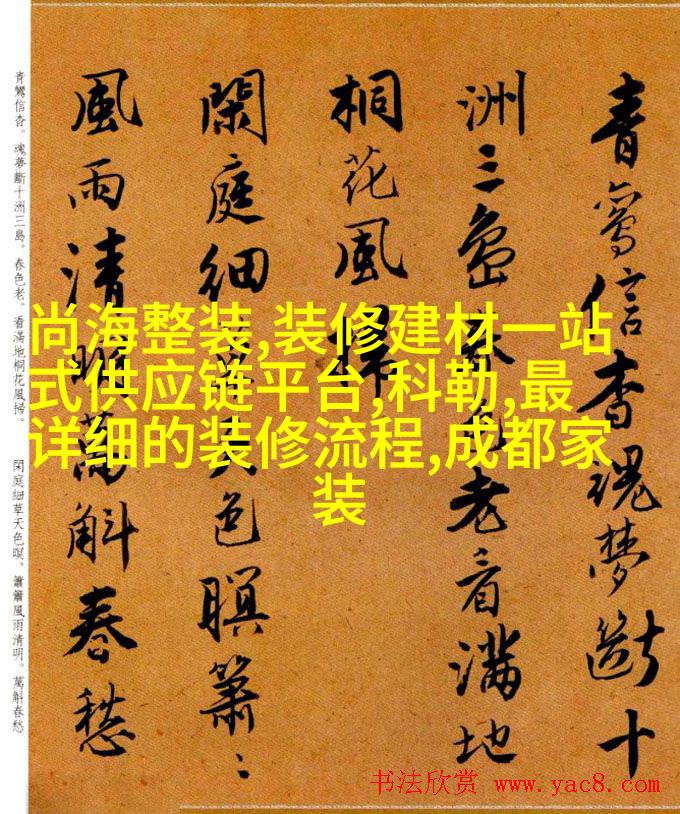 青鸞信杳魂夢斷十
洲三島春色老看滿地
桐花風掃
閑庭細草天色瞑簫〻
風雨清明萬斛春愁
青鸞信杳。魂夢斷十洲三島。春色老。看滿地桐花風掃。 閑庭細草天色暝。簫簫風雨清明。萬斛春愁
尚海整装,装修建材一站
式供应链平台,科勒,最
详细的装修流程,成都家
装
书法欣赏 www.yac8.com